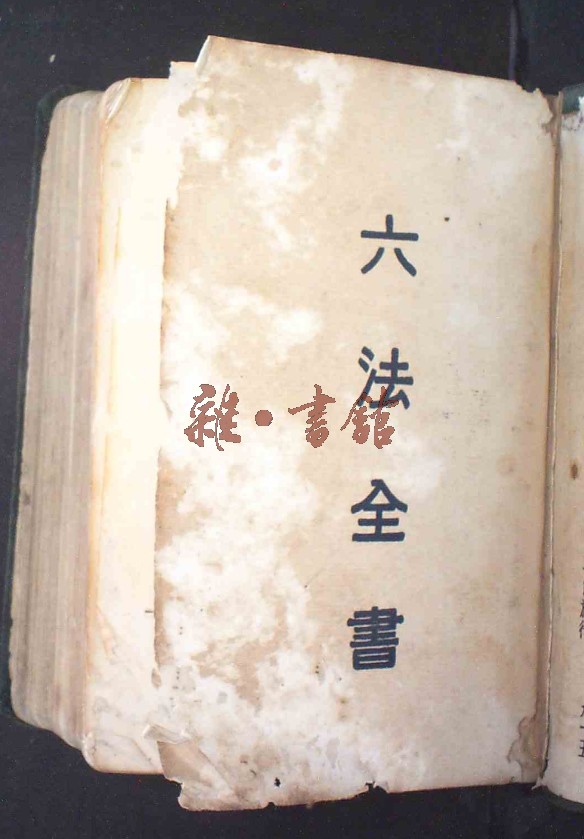 六法全書
雜·書館